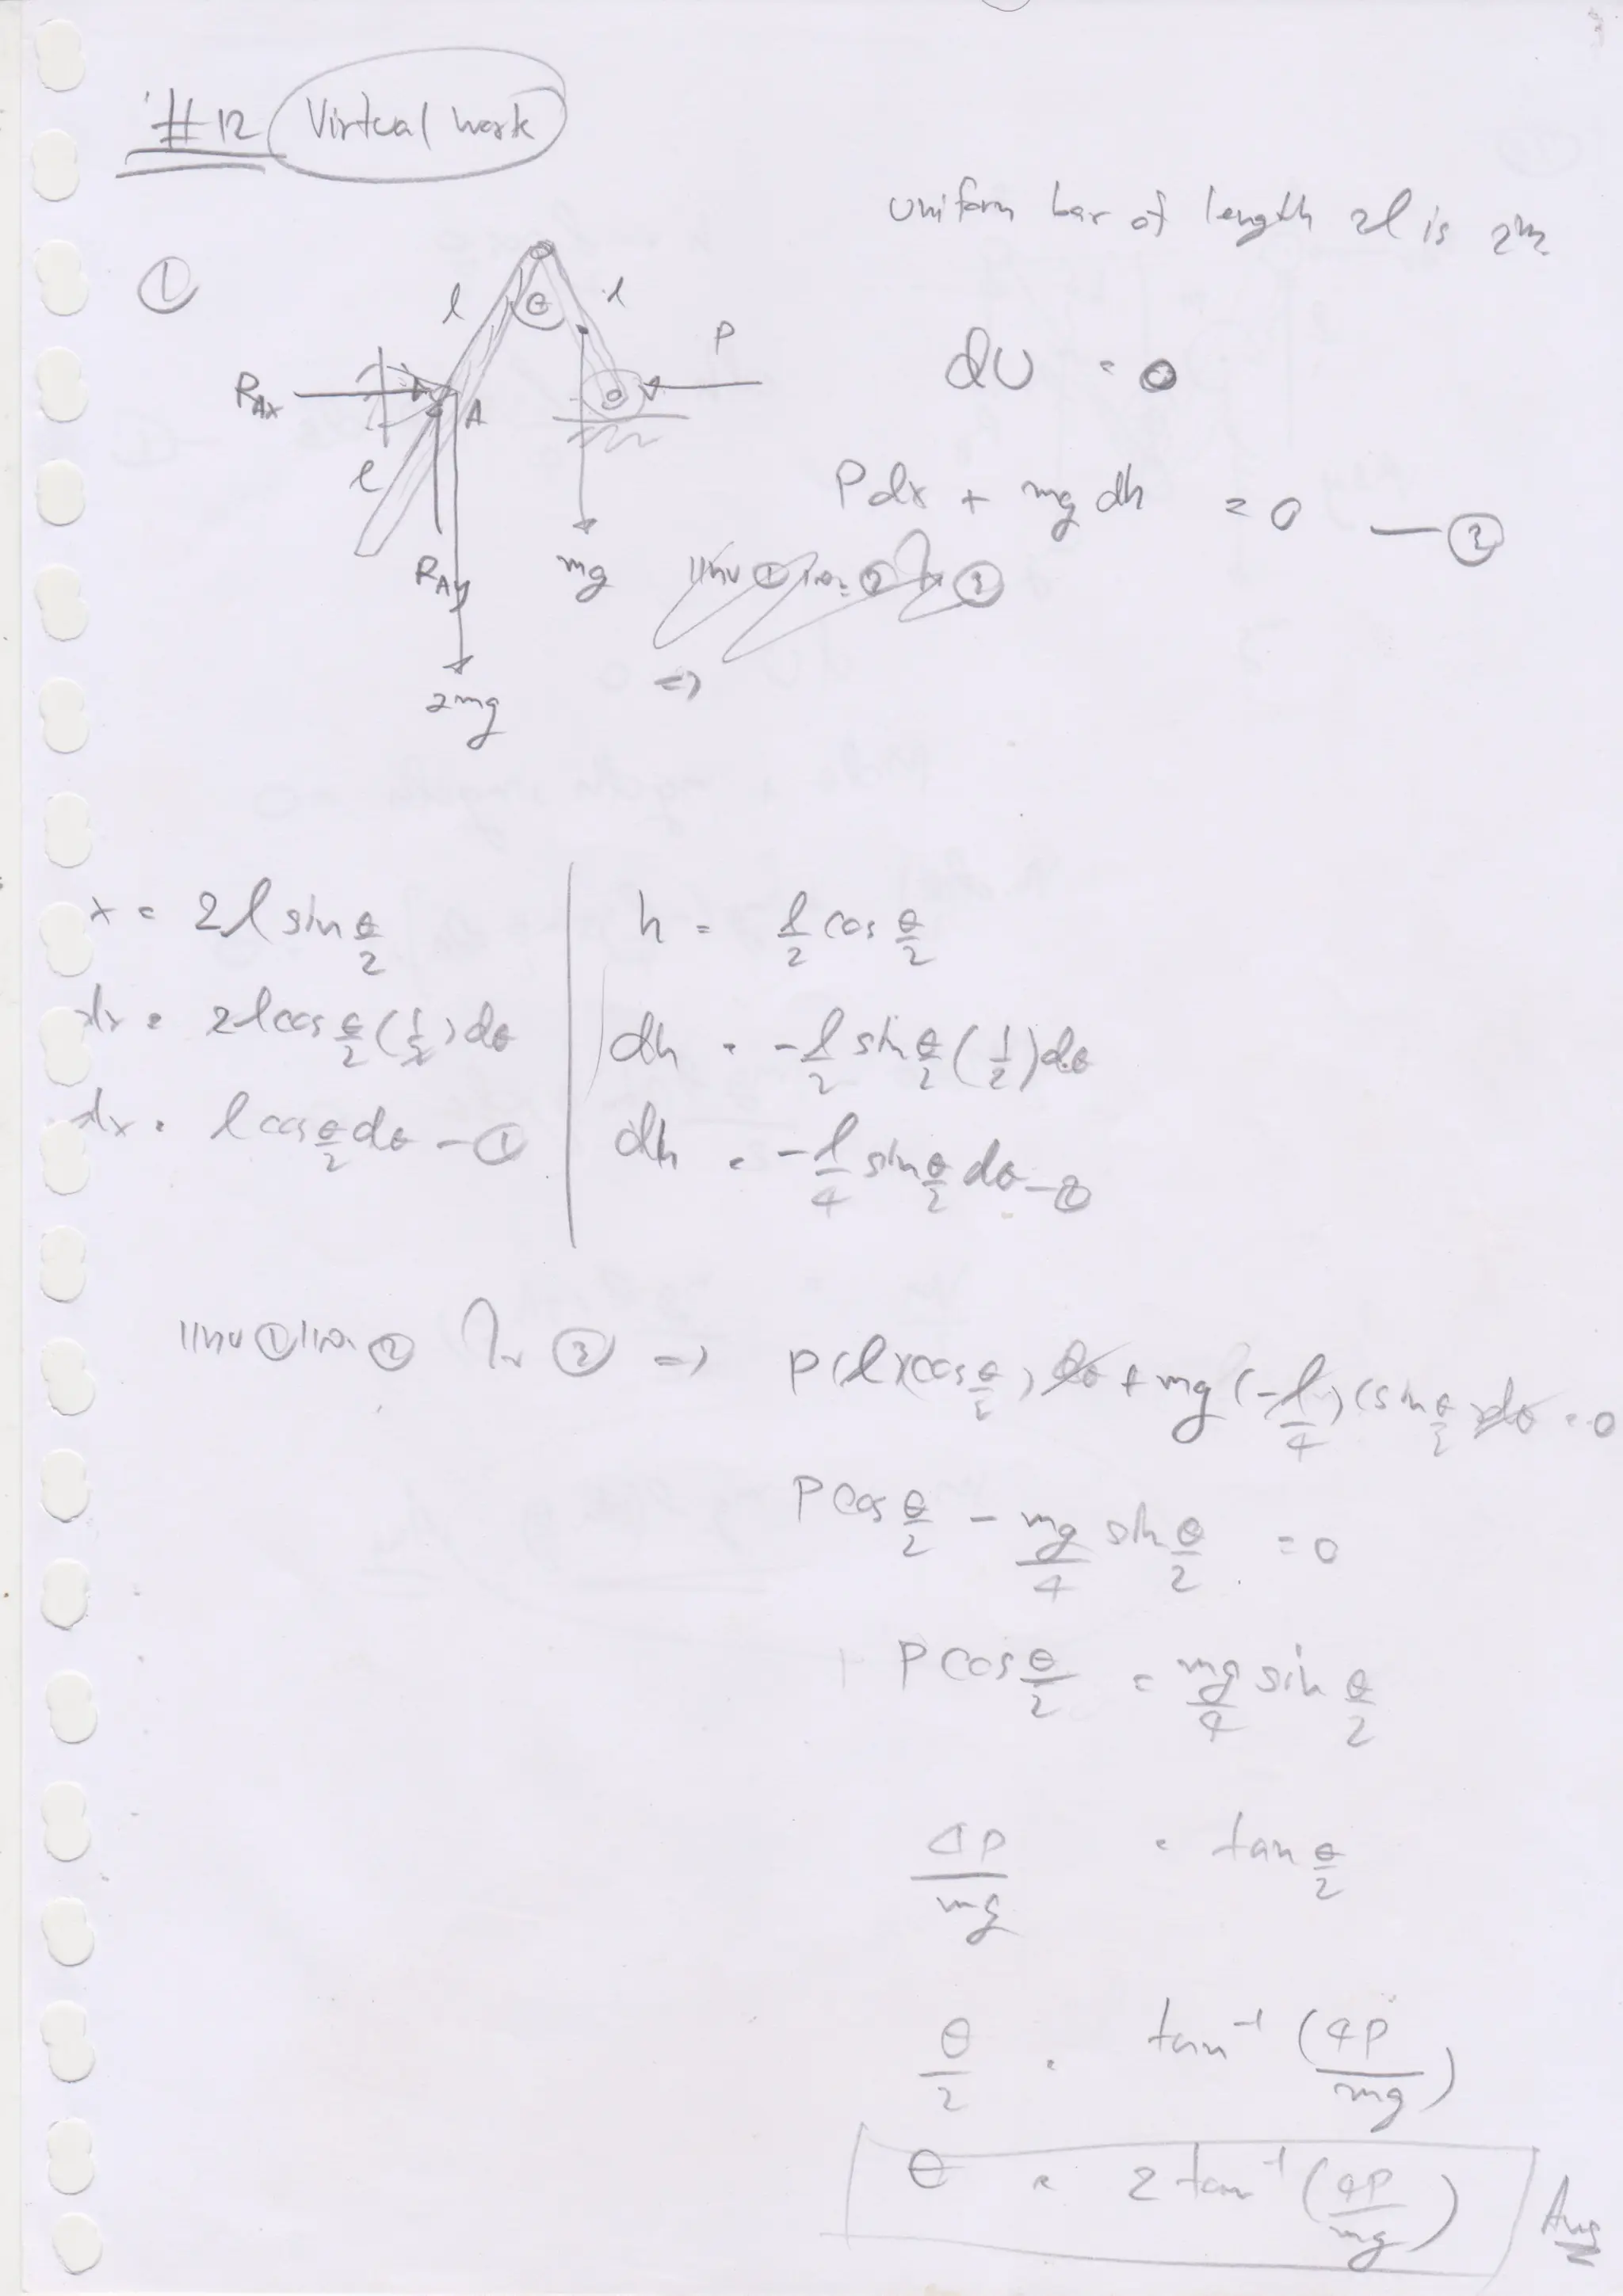 #12 Virtual work
uniform bar of length 2l is 2m
①
l θ l
P
dU = 0
R_Ax
A
l
P dx + mg dh = 0 — ③
R_Ay
mg
แทน ① และ ② ใน ③
2mg
=>
x = 2l sin θ/2
dx = 2l cos θ/2 (1/2) dθ
dx = l cos θ/2 dθ – ①
h = l/2 cos θ/2
dh = -l/2 sin θ/2 (1/2) dθ
dh = -l/4 sin θ/2 dθ – ②
แทน ① และ ② ใน ③ => P(l)(cos θ/2) dθ + mg (-l/4)(sin θ/2) dθ = 0
P cos θ/2 - mg/4 sin θ/2 = 0
P cos θ/2 = mg/4 sin θ/2
4P/mg = tan θ/2
θ/2 = tan⁻¹ (4P/mg)
θ = 2 tan⁻¹ (4P/mg) Ans